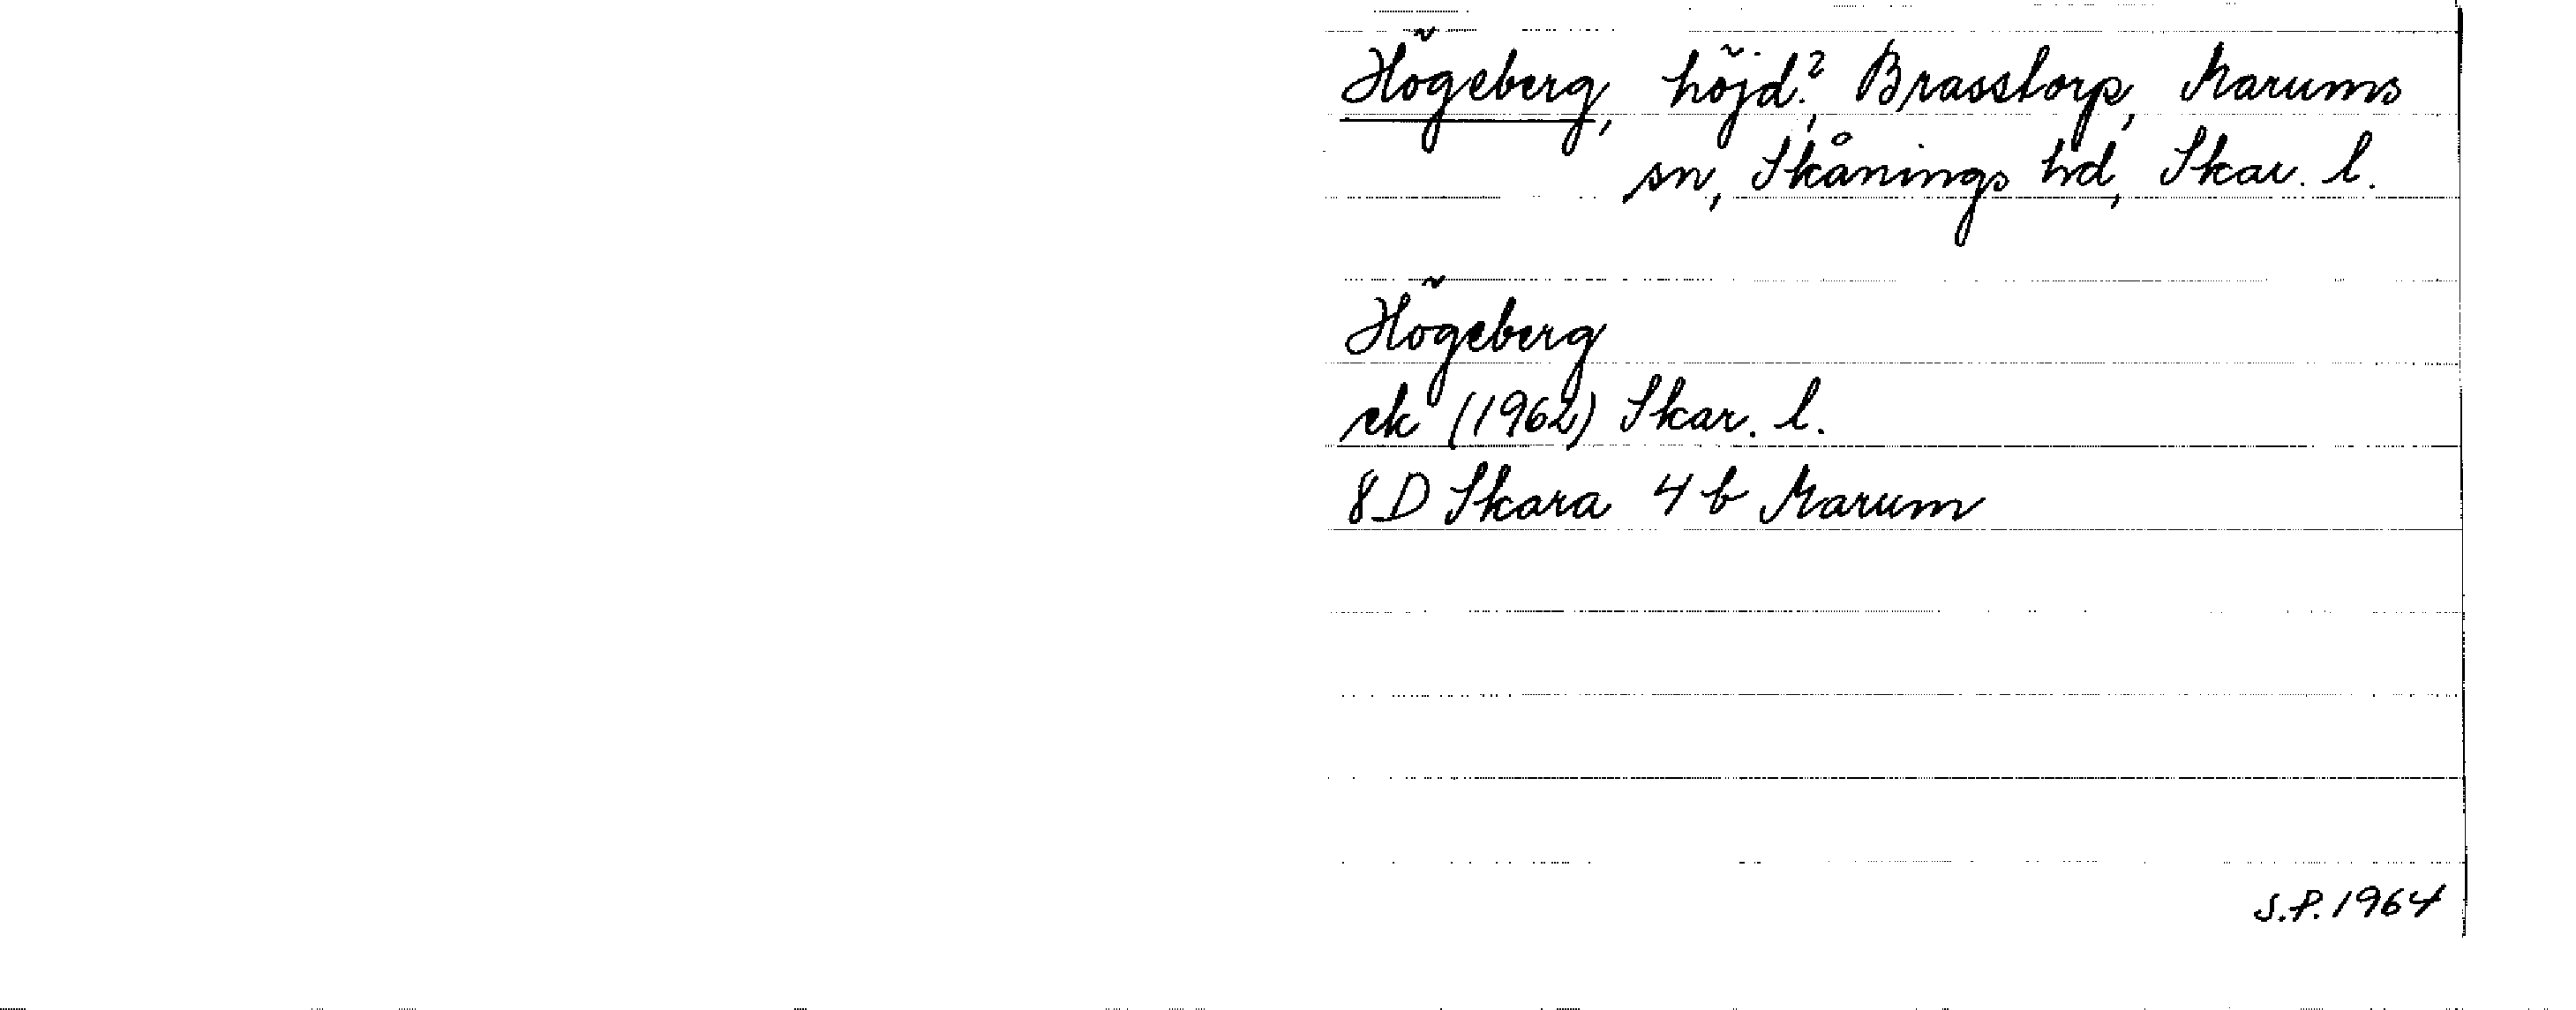 Högeberg, höjd?, Brasstorp, Marums
sn, Skånings hd, Skar. l.
Högeberg
ek (1962) Skar. l.
8D Skara 4 b Marum
S.P. 1964